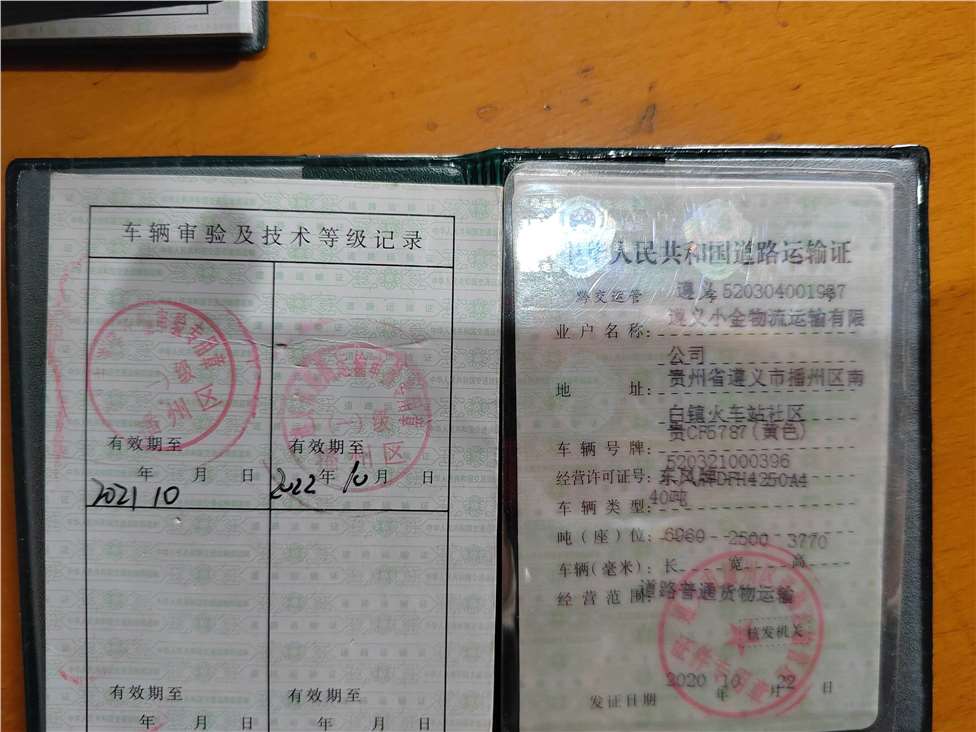 车辆审验及技术等级记录
有效期至
年 月 日
2021 10
有效期至
2022 年 10 月 日
有效期至
年 月 日
有效期至
年 月 日
中华人民共和国道路运输证
黔交运管 遵义 号 520304001987
业户名称: 遵义小金物流运输有限
公司
地 址: 贵州省遵义市播州区南
白镇火车站社区
车辆号牌: 贵CF5787(黄色)
520321000396
经营许可证号: 东风牌DFH4250A4
车辆类型: 40吨
吨(座)位: 6969 2500 3770
车辆(毫米): 长 宽 高
经营范围: 道路普通货物运输
核发机关
2020 10 22
发证日期 年 月 日